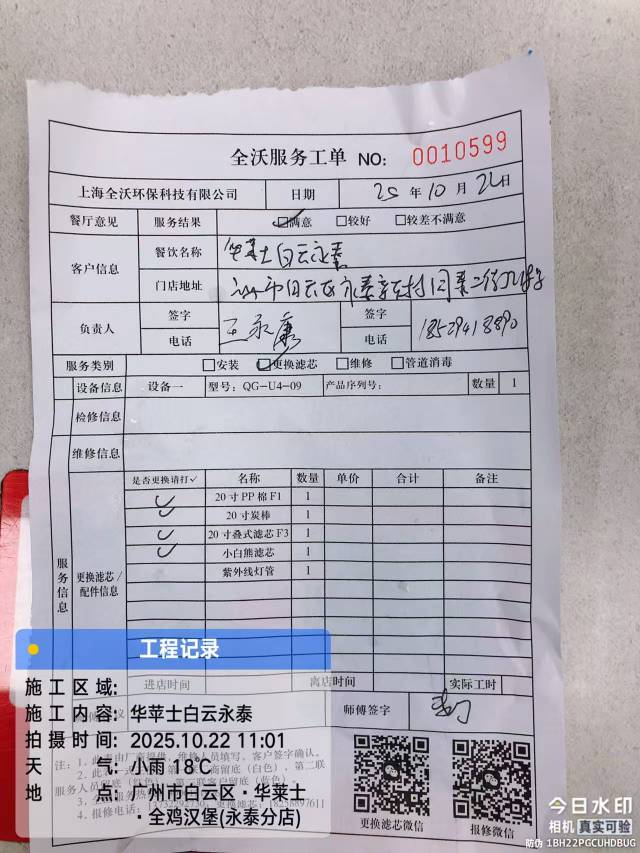 全沃服务工单 NO: 0010599
上海全沃环保科技有限公司 日期 25 年 10 月 22日
餐厅意见 服务结果 ☑满意 □较好 □较差不满意
客户信息 餐饮名称 华莱士白云永泰
门店地址
负责人 签字 电话 王永康 签字 电话
服务类别 □安装 ☑更换滤芯 □维修 □管道消毒
设备信息 设备一 型号: QG-U4-09 产品序列号: 数量 1
检修信息
维修信息
服务信息 更换滤芯/配件信息 是否更换请打✓ 名称 数量 单价 合计 备注
✓ 20寸PP棉F1 1
✓ 20寸炭棒 1
✓ 20寸叠式滤芯F3 1
✓ 小白熊滤芯 1
紫外线灯管 1
进店时间 离店时间 实际工时
师傅签字
更换滤芯微信 报修微信
工程记录
施工区域:
施工内容: 华苹士白云永泰
拍摄时间: 2025.10.22 11:01
天气: 小雨 18℃
地点: 广州市白云区·华莱士
·全鸡汉堡(永泰分店)
今日水印
相机 真实可验
防伪 1BH22PGCUHDBUG